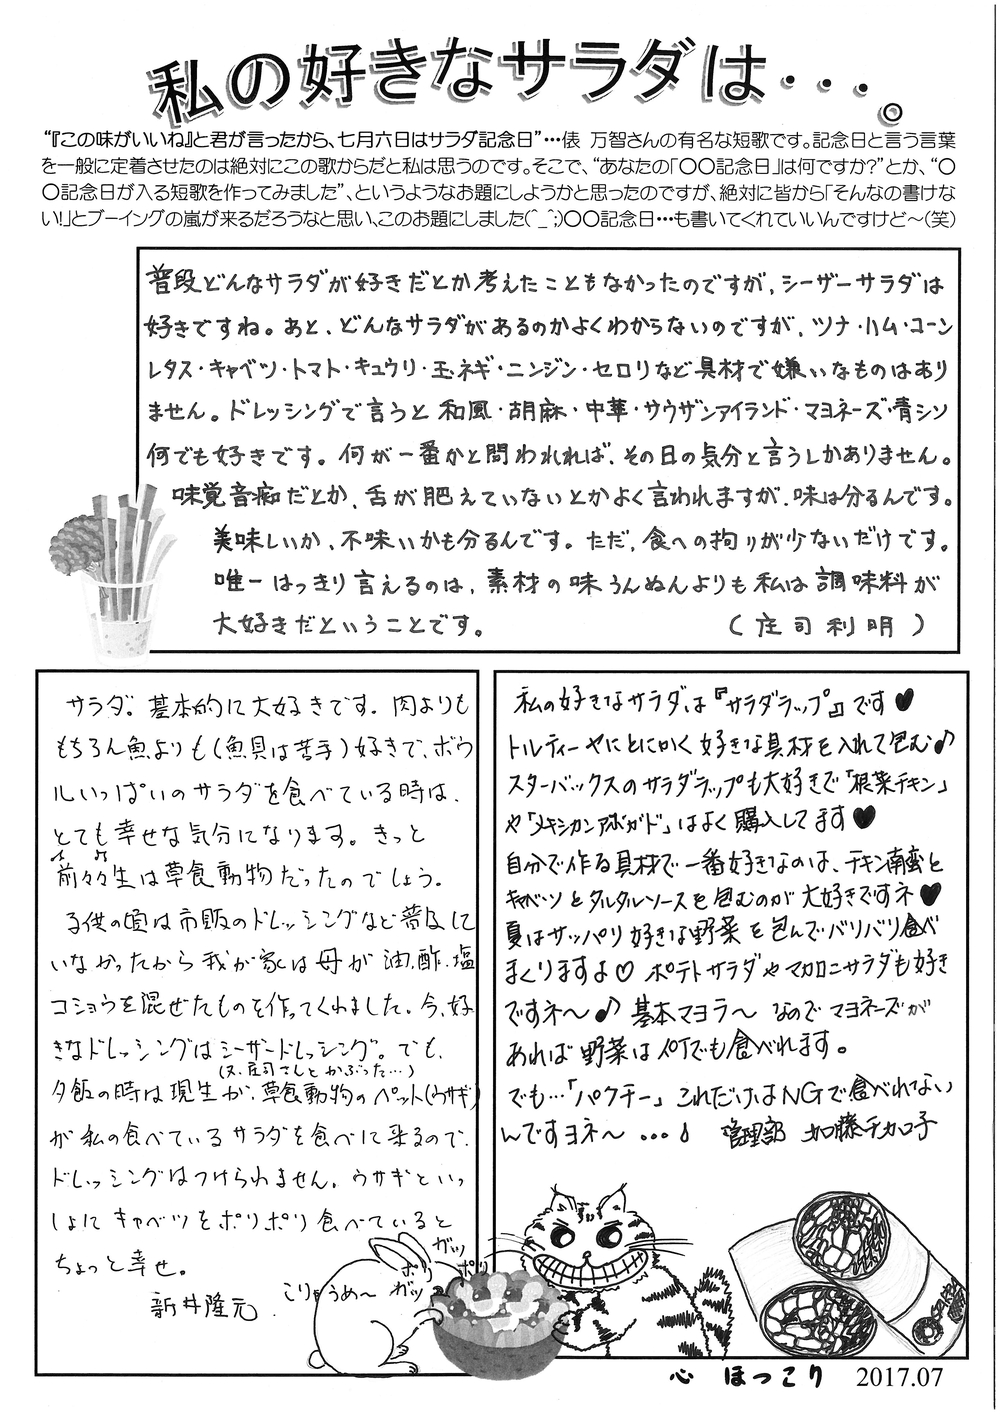 私の好きなサラダは・・・。
“『この味がいいね』と君が言ったから、七月六日はサラダ記念日”…俵 万智さんの有名な短歌です。記念日と言う言葉
を一般に定着させたのは絶対にこの歌からだと私は思うのです。そこで、“あなたの「〇〇記念日」は何ですか?”とか、“〇
〇記念日が入る短歌を作ってみました”、というようなお題にしようかと思ったのですが、絶対に皆から「そんなの書けな
い!」とブーイングの嵐が来るだろうなと思い、このお題にしました(^_^;)〇〇記念日…も書いてくれていいんですけど〜(笑)
普段どんなサラダが好きだとか考えたこともなかったのですが、シーザーサラダは
好きですね。あと、どんなサラダがあるのかよくわからないのですが、ツナ・ハム・コーン
レタス・キャベツ・トマト・キュウリ・玉ネギ・ニンジン・セロリなど具材で嫌いなものはあり
ません。ドレッシングで言うと和風・胡麻・中華・サウザンアイランド・マヨネーズ・青シソ
何でも好きです。何が一番かと問われれば、その日の気分と言うしかありません。
味覚音痴だとか、舌が肥えていないとかよく言われますが、味は分るんです。
美味しいか、不味いかも分るんです。ただ、食への拘りが少ないだけです。
唯一はっきり言えるのは、素材の味うんぬんよりも私は調味料が
大好きだということです。 (庄司利明)
サラダ。基本的に大好きです。肉よりも
もちろん魚よりも(魚貝は苦手)好きで、ボウ
ルいっぱいのサラダを食べている時は、
とても幸せな気分になります。きっと
前々々生は草食動物だったのでしょう。
子供の頃は市販のドレッシングなど普及して
いなかったから我が家は母が油、酢、塩
コショウを混ぜたものを作ってくれました。今、好
きなドレッシングはシーザードレッシング。でも、
(又、庄司さんとかぶった…)
夕飯の時は現生が、草食動物のペット(ウサギ)
が私の食べているサラダを食べに来るので、
ドレッシングはつけられません。ウサギといっ
しょにキャベツをポリポリ食べていると
ちょっと幸せ。
新井隆元
私の好きなサラダは『サラダラップ』です♥
トルティーヤにとにかく好きな具材を入れて包む♪
スターバックスのサラダラップも大好きで「根菜チキン」
や「メキシカンアボガド」はよく購入してます♥
自分で作る具材で一番好きなのは、チキン南蛮と
キャベツとタルタルソースを包むのが大好きですネ♥
夏はサッパリ好きな野菜を包んでバリバリ食べ
まくりますよ♡ ポテトサラダやマカロニサラダも好き
ですネ〜♪ 基本マヨラ〜なのでマヨネーズが
あれば野菜は何でも食べれます。
でも…「パクチー」これだけはNGで食べれない
んですヨネ〜…♪ 管理部 加藤チカ子
こりゃうめ〜
ポリ
ポリ
ガッ
ガッ
心 ほっこり 2017.07